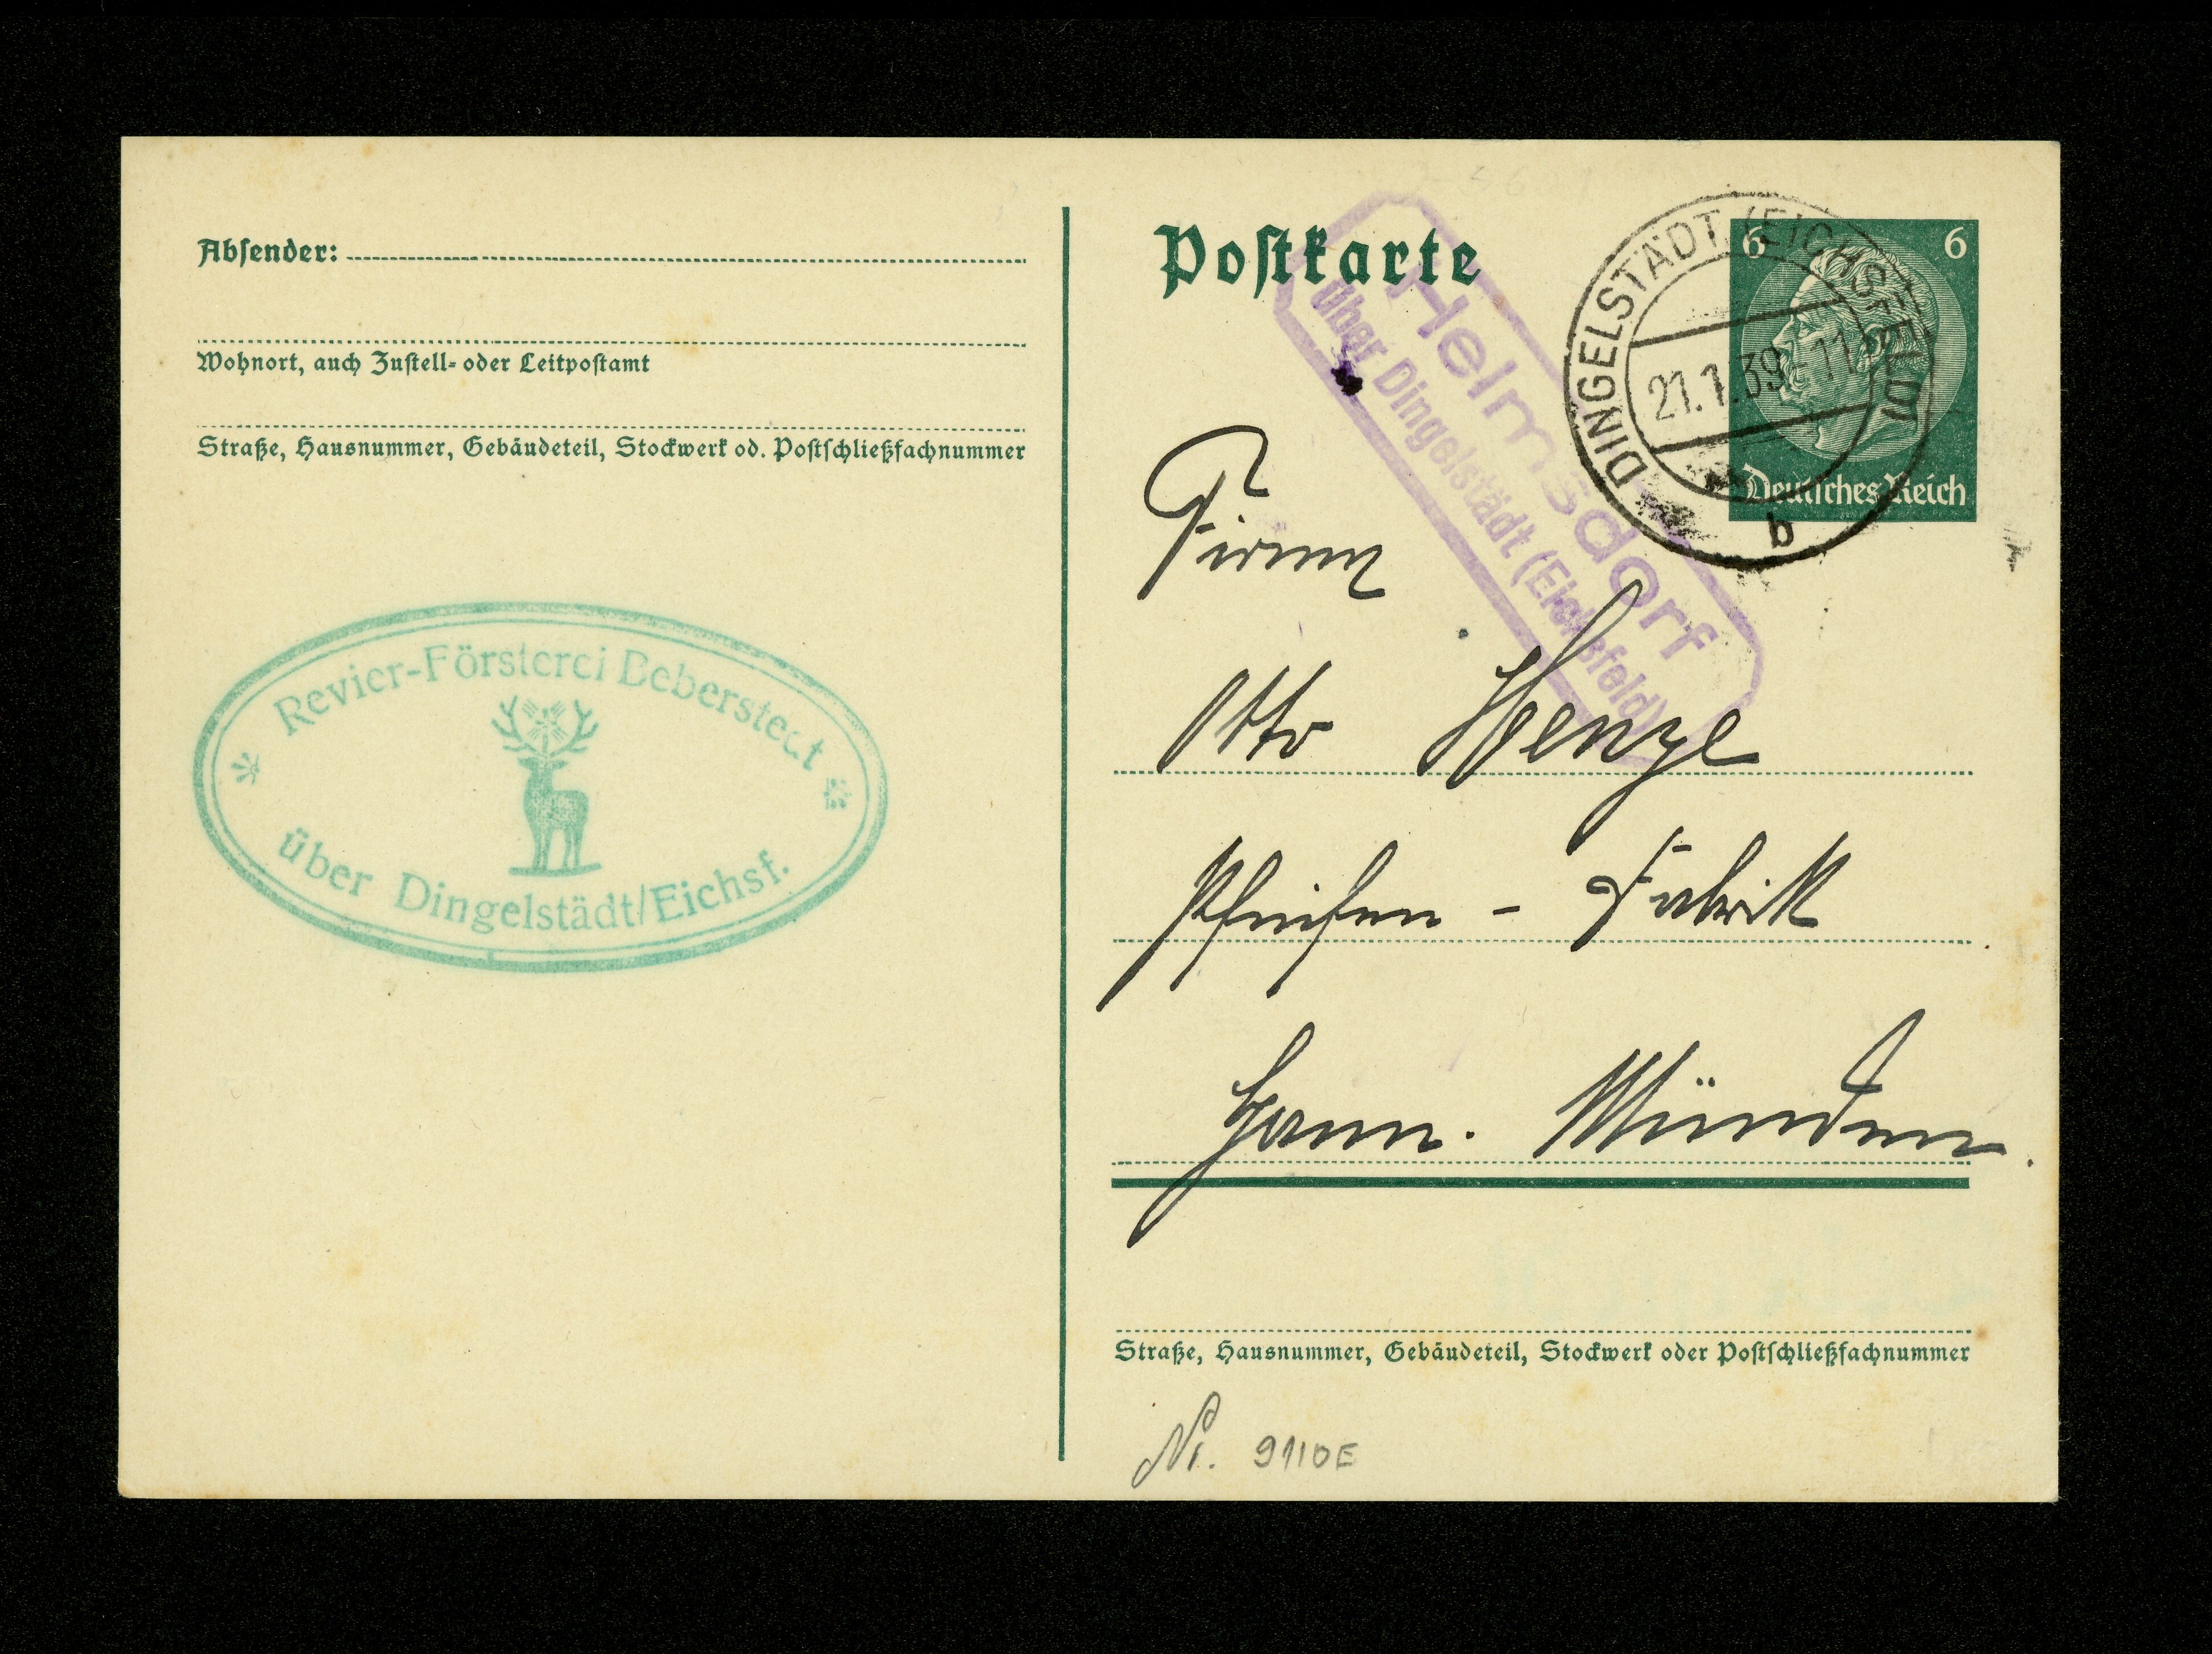 Absender:
Wohnort, auch Zustell- oder Leitpostamt
Straße, Hausnummer, Gebäudeteil, Stockwerk od. Postschließfachnummer
* Revier-Försterei Beberstedt *
über Dingelstädt/Eichsf.
Postkarte
Helmsdorf
über Dingelstädt (Eichsfeld)
DINGELSTÄDT (EICHSFELD)
21.1.39 - 11
b
6 6
Deutsches Reich
Firma
Otto Henze
Pfeifen - Fabrik
Hann. Münden.
Straße, Hausnummer, Gebäudeteil, Stockwerk oder Postschließfachnummer
Nr. 9110E